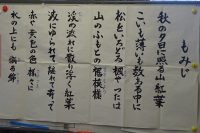 もみじ
秋の夕日に照る山紅葉
こいも薄いも数ある中に
松をいろどる楓やつたは
山のふもとの裾模様
渓の流れに散り浮く紅葉
波にゆられて離れて寄って
赤や黄色の色様々に
水の上にも織る錦